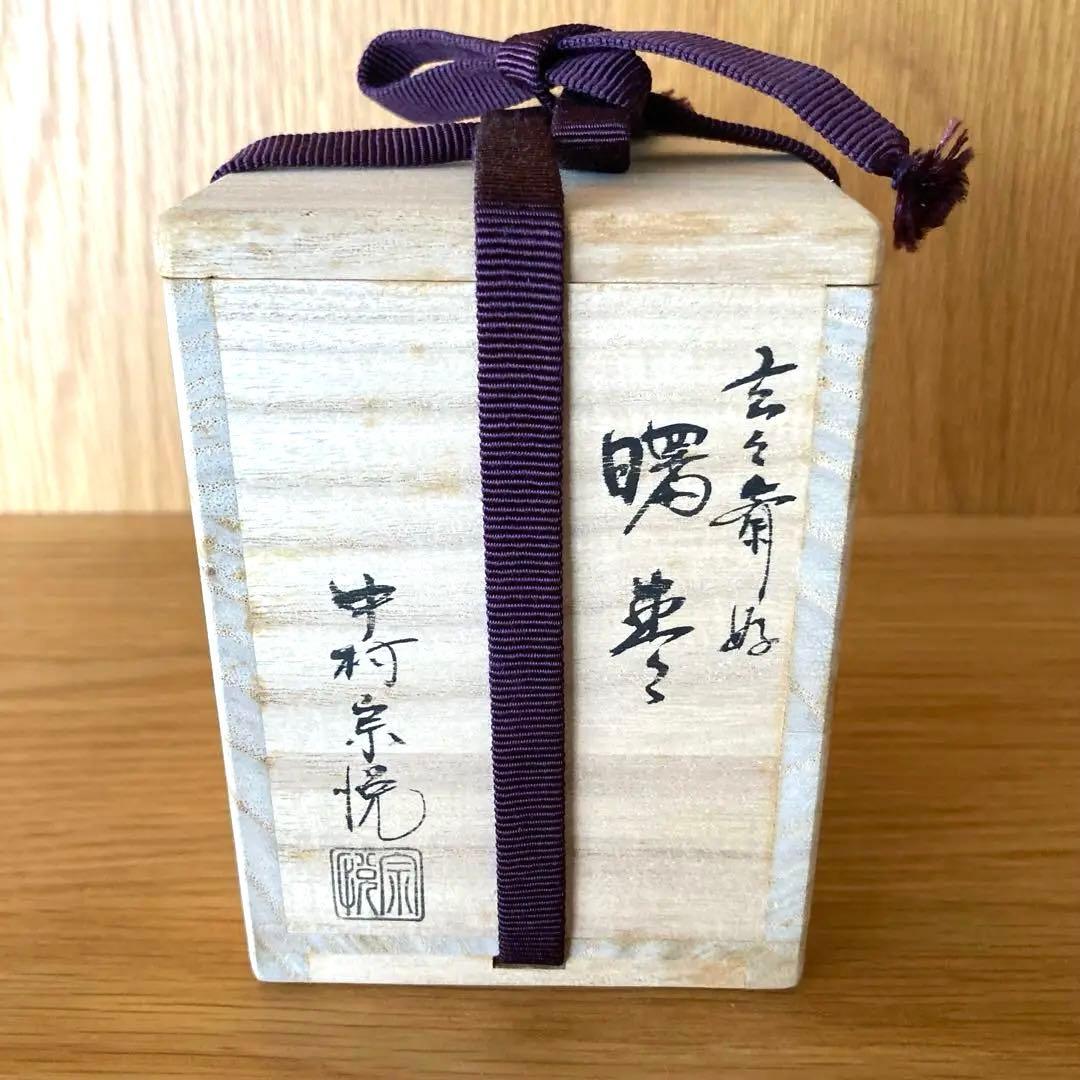 玄々斎好
曙棗
中村宗悦
宗悦